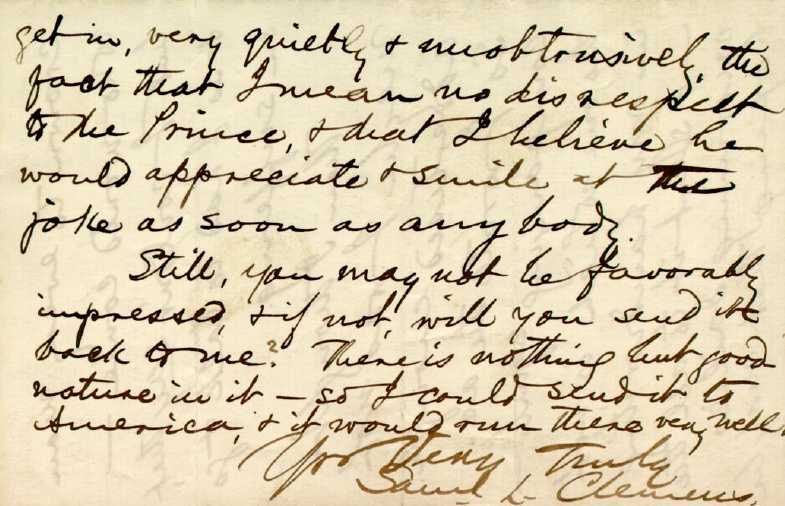 get in, very quietly & unobtrusively, the
fact that I mean no disrespect
to the Prince, & that I believe he
would appreciate & smile at the
joke as soon as anybody.
Still, you may not be favorably
impressed, & if not, will you send it
back to me? There is nothing but good
nature in it — so I could send it to
America, & it would run there very well.
Yrs Very Truly
Saml. L. Clemens.